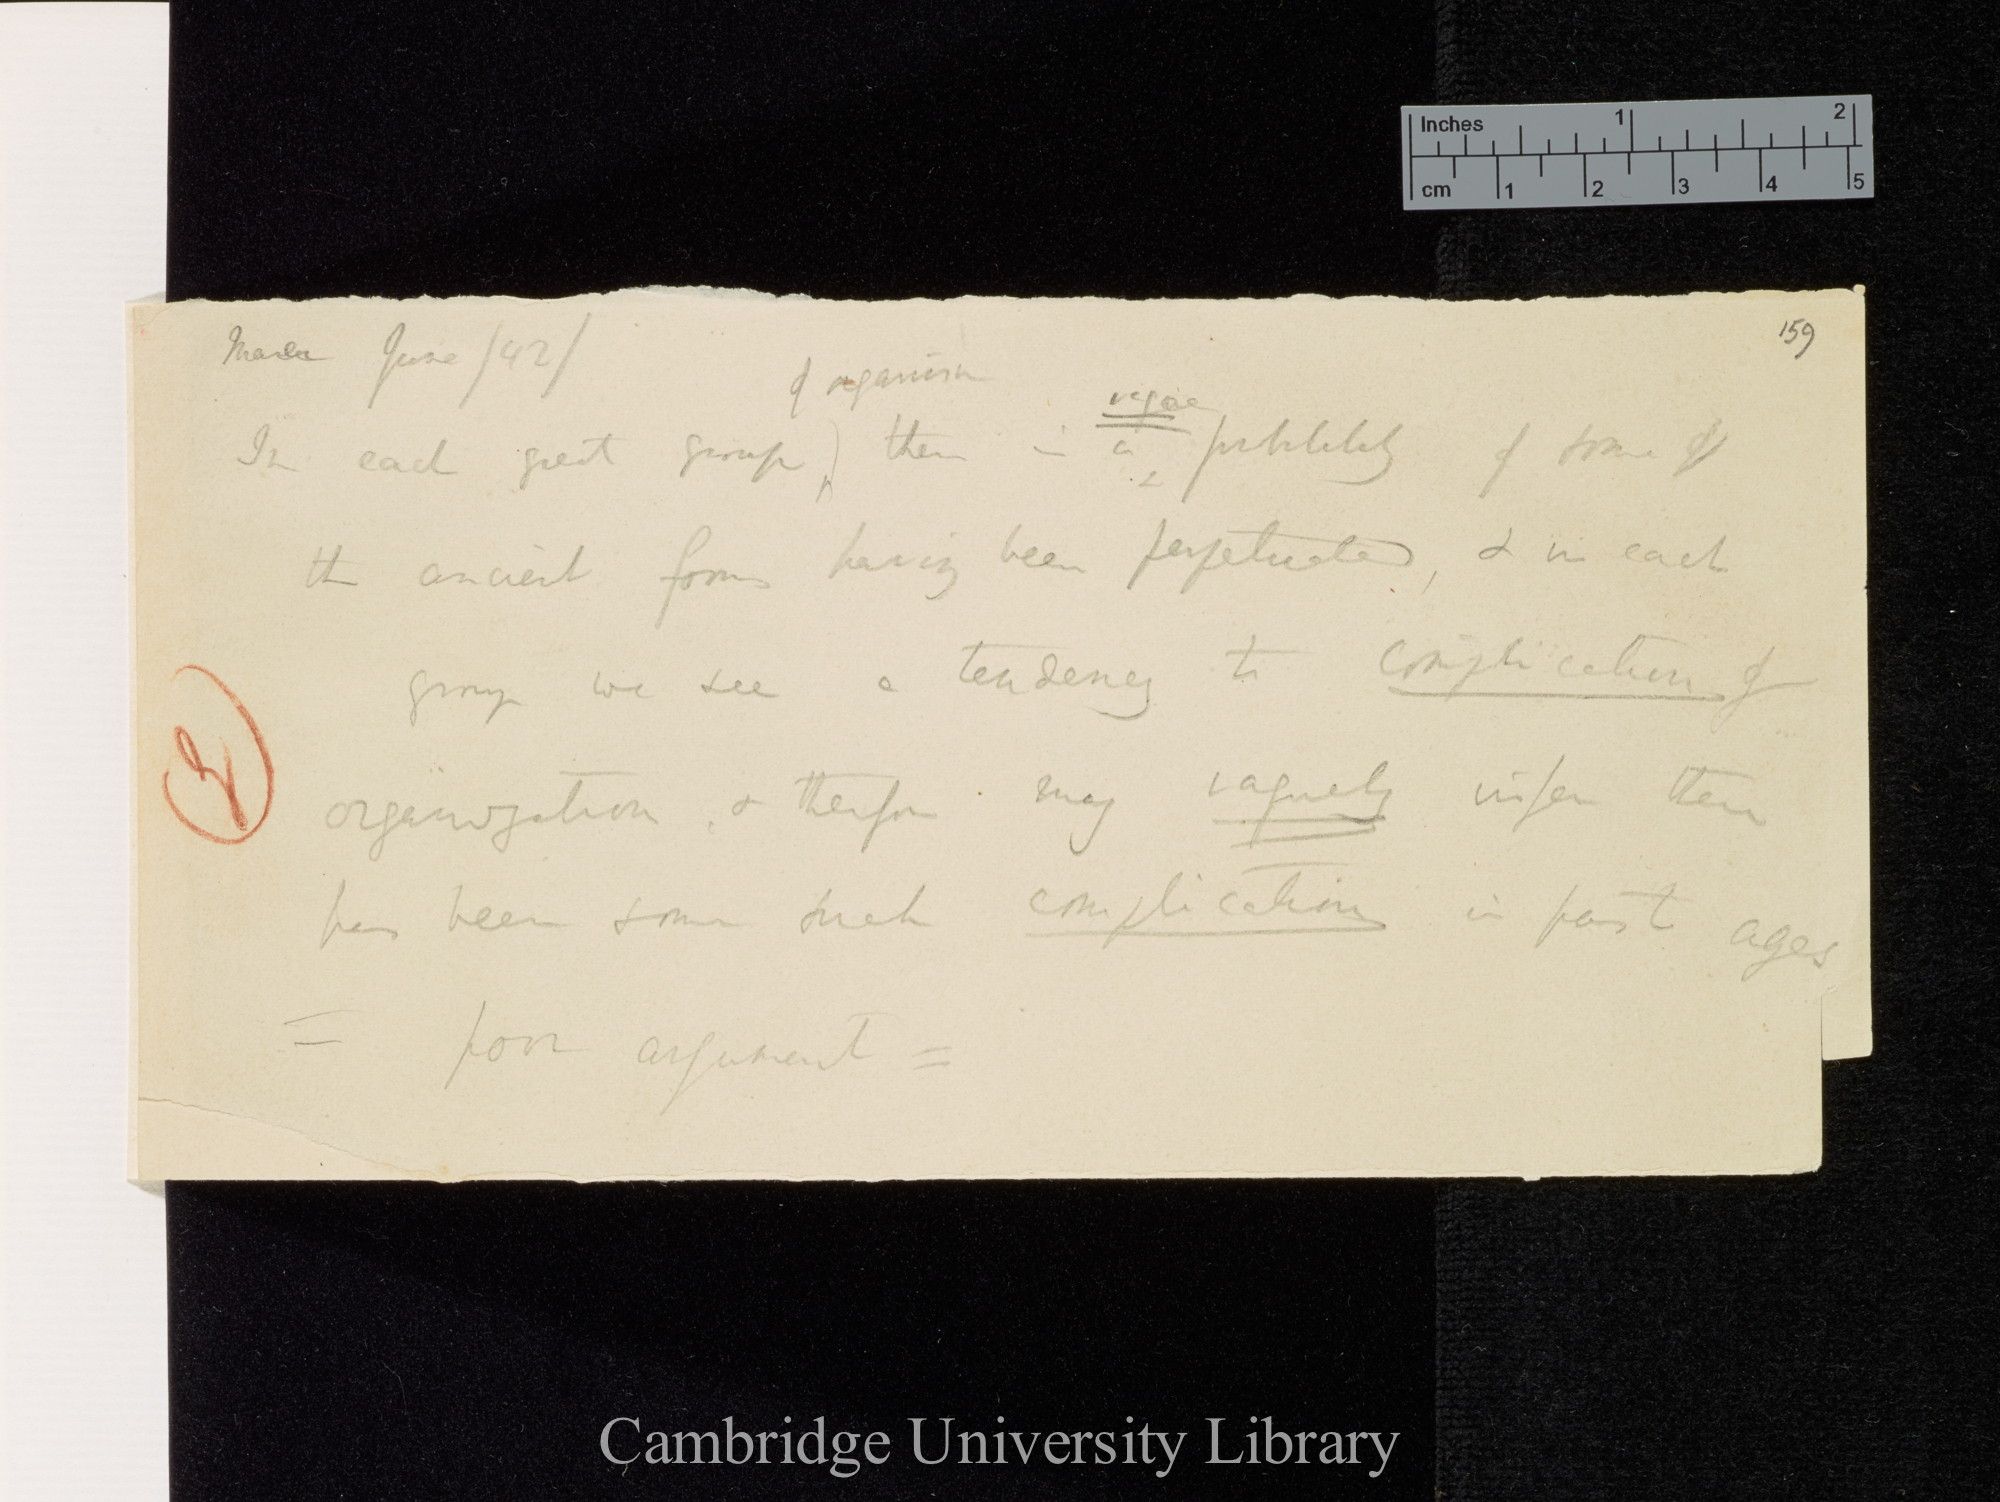 159
Maer June /42/
of organism
vague
In each great group, there is a probability of some of
the ancient forms having been perpetuated, & in each
group we see a tendency to complication of
organization, & therefore may vaguely infer there
has been some such complication in past ages
= poor argument =
Inches 1 2
cm 1 2 3 4 5
Cambridge University Library